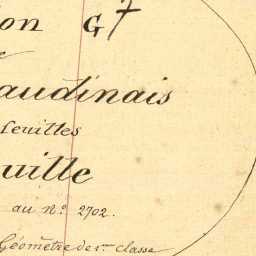 ion G 7
e
audinais
feuilles
uille
au Nº 2702.
Géomètre de 1re classe